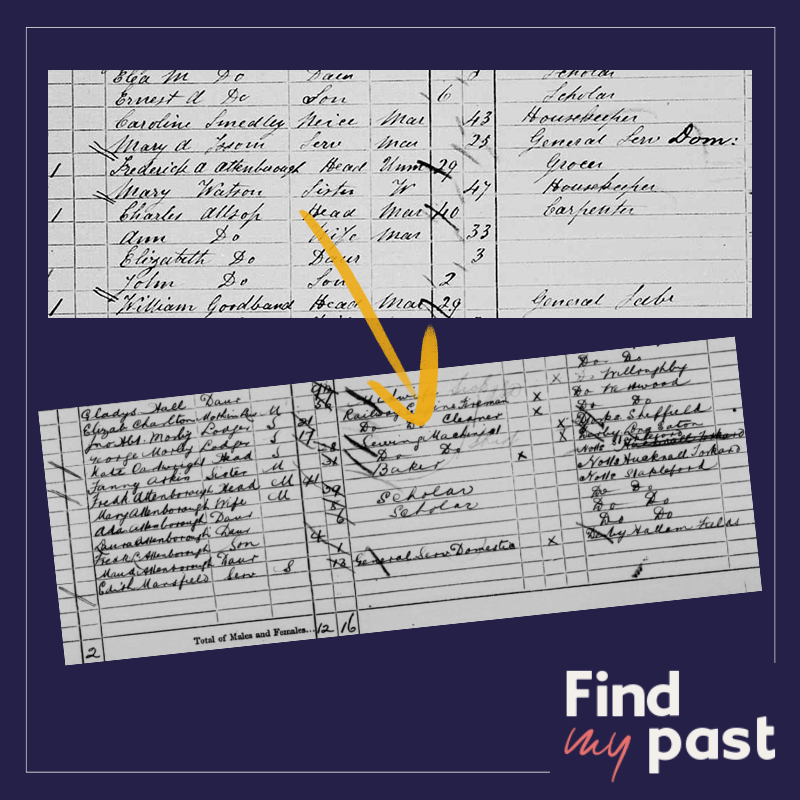 Eliza M Do Daur Scholar
Ernest A Do Son 6 Scholar
Caroline Smedley Neice Mar 43 Housekeeper
Mary A Serv Mar 25 General Serv Dom:
1 Frederick A Attenborough Head Unm 29 Grocer
Mary Watson Sister W 47 Housekeeper
1 Charles Allsop Head Mar 40 Carpenter
Ann Do Wife Mar 33
Elizabeth Do Daur 3
John Do Son 2
1 William Goodband Head Mar 29 General
Gladys Hall Daur Do Do
Elizab Charlton M Willoughby
Jno Hbt. Morley Lodger S 21 Railway Engine Fireman x Do
George Morley Lodger S 17 Do Do Cleaner x Do Do
Kate Cartwright Head S Sewing Machinist x Sheffield
Fanny Sister M Do Do x Derby Long Eaton
Fredk Attenborough Head M 41 Baker x Notts
Mary Attenborough Wife M Notts Hucknall Torkard
Ada Attenborough Daur Scholar Notts Stapleford
Laura Attenborough Daur 6 Scholar Do Do
Fredk C Attenborough Son 4 Do Do
Maud Attenborough Daur 1 Do Do
Edith Mansfield Serv S 13 General Serv Domestic x Derby Hallam Fields
2 Total of Males and Females... 12 16
Find
my past